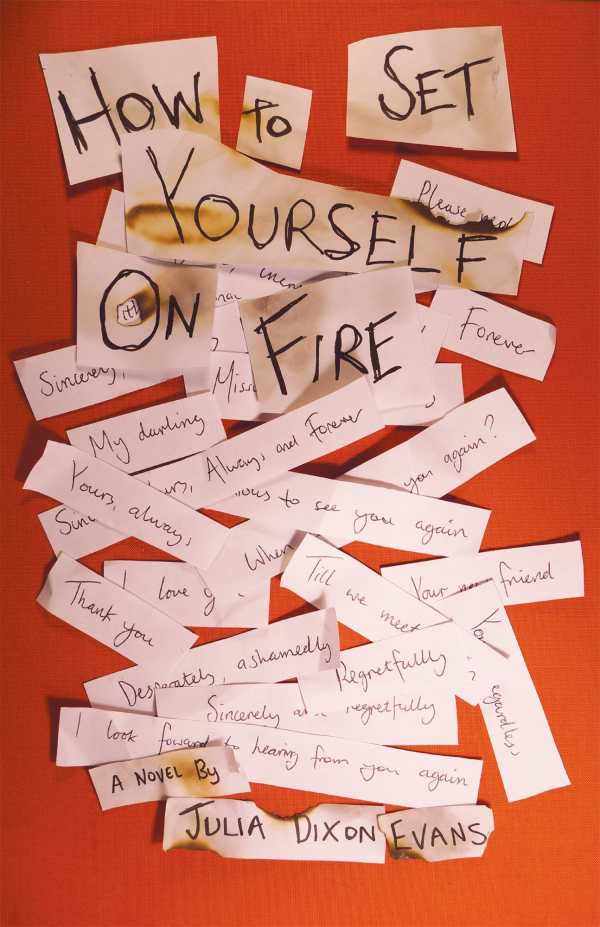 HOW TO SET
YOURSELF
Please
ON
FIRE
Forever
Sincerely,
My darling
Always and Forever
you again?
Yours, always,
to see you again
When
I love
Till we meet
Your friend
Thank you
Desperately, ashamedly
Regretfully
Sincerely regretfully
regardless,
I look foward to hearing from you again
A NOVEL BY
JULIA DIXON EVANS